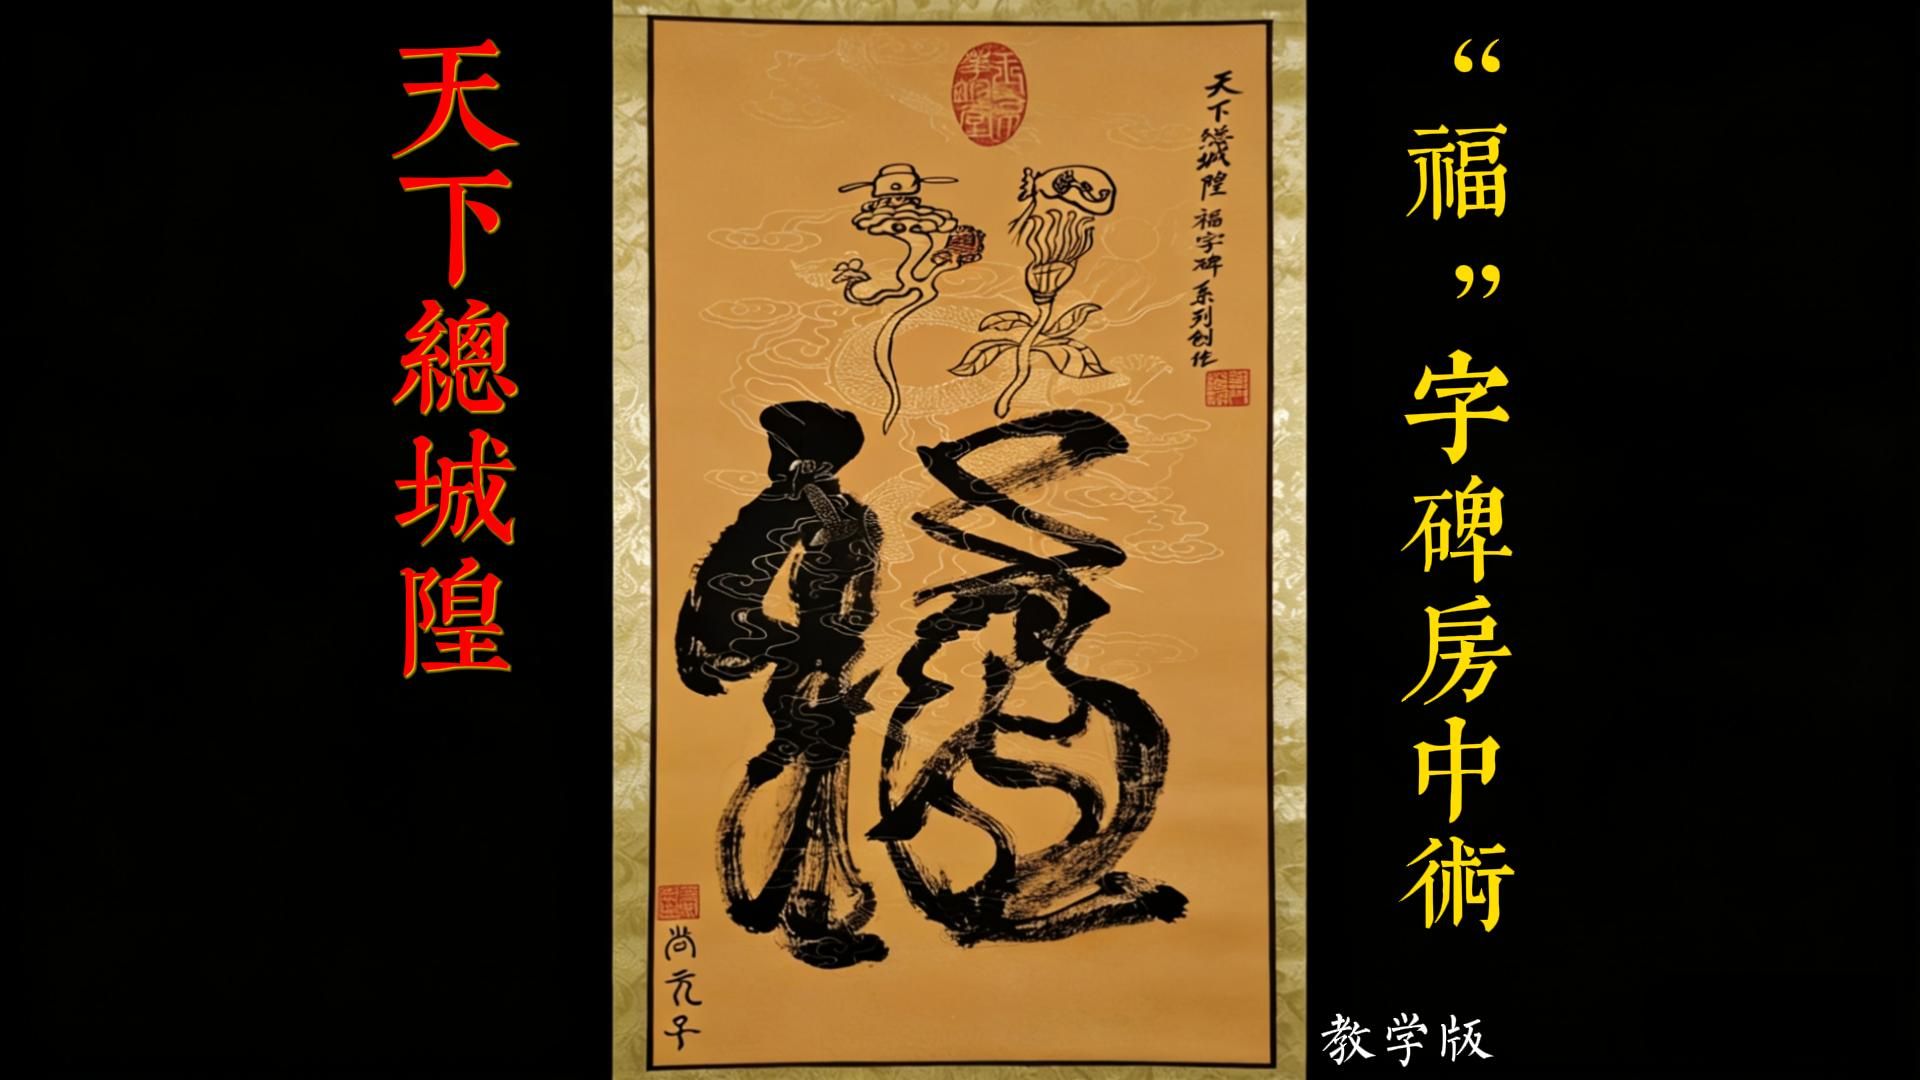 天下總城隍
“福”字碑房中術
天下總城隍 福字碑系列创作
福
尚元子
教学版